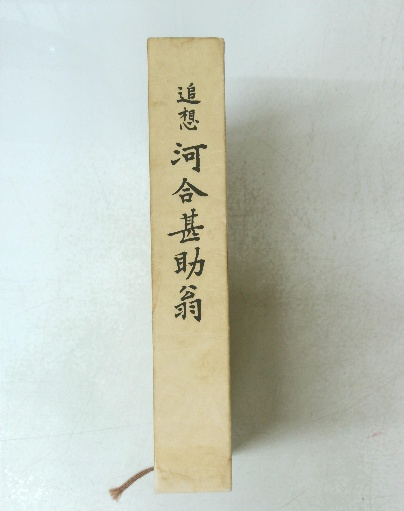 追想 河合甚助翁